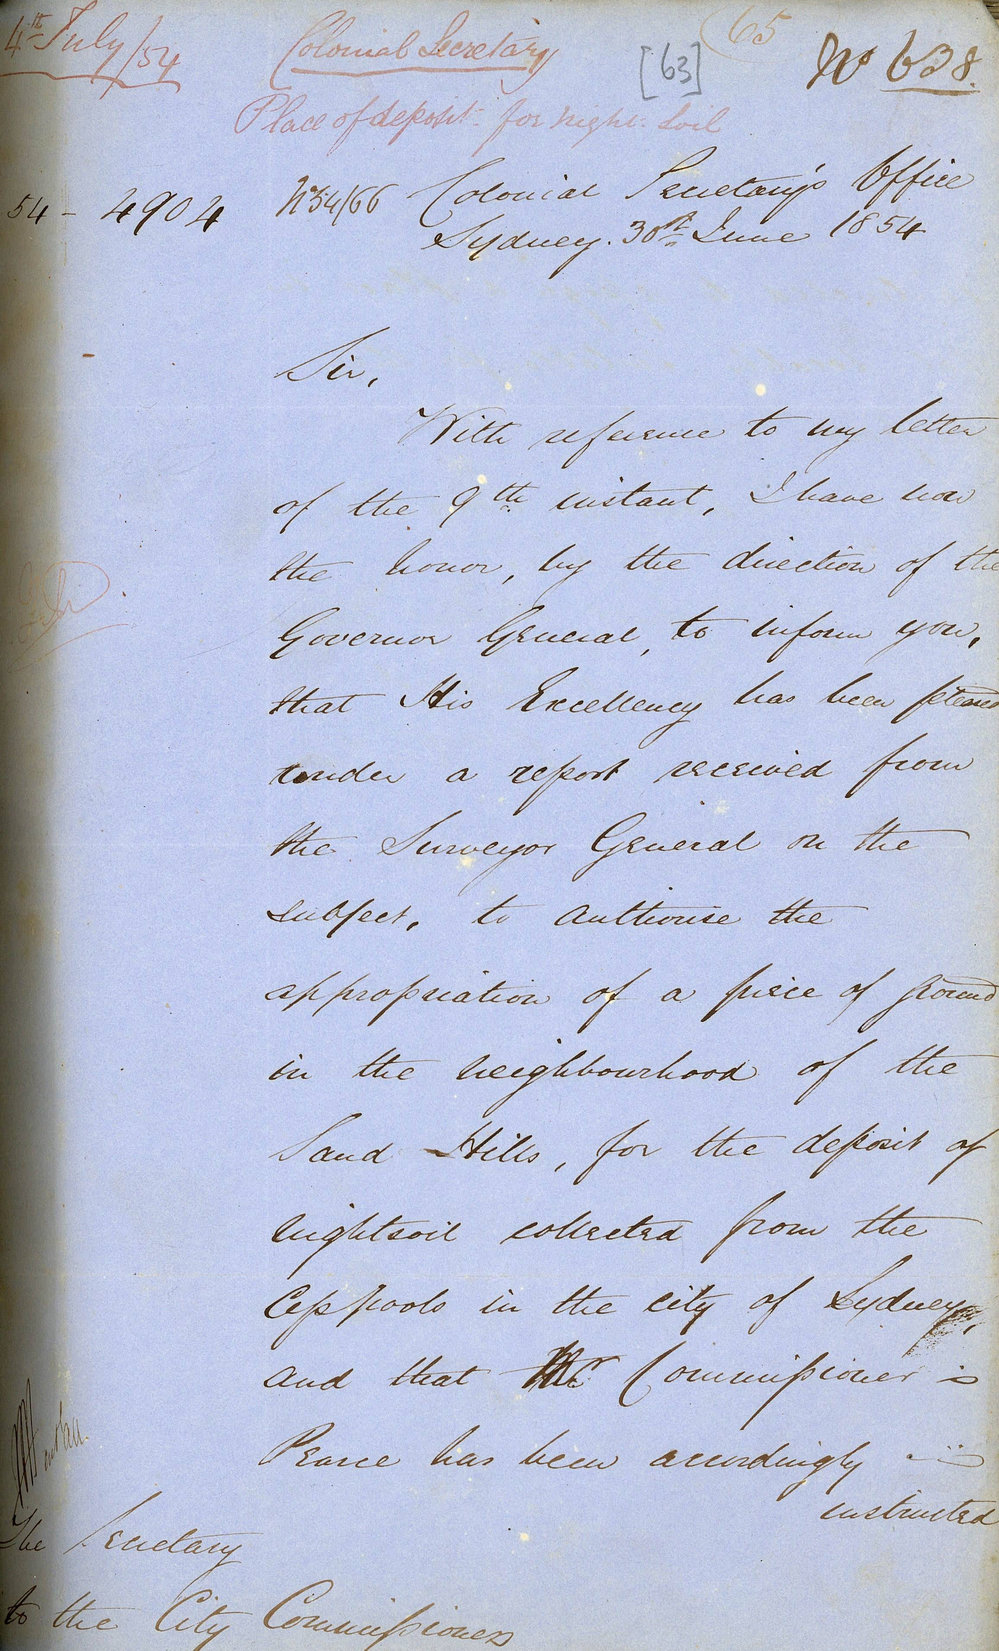 4th July/54
Colonial Secretary
(65
[63]
No 638.
Place of deposit for night soil
54 - 4904
No 54/66 Colonial Secretary's Office
Sydney. 30th June 1854
Sir,
With reference to my letter
of the 9th instant, I have now
the honor, by the direction of the
Governor General, to inform you,
that His Excellency has been pleased
under a report received from
the Surveyor General on the
subject, to authorise the
appropriation of a piece of ground
in the neighbourhood of the
Sand Hills, for the deposit of
nightsoil collected from the
Cesspools in the city of Sydney,
and that Mr Commissioner
Pearce has been accordingly
instructed
The Secretary
to the City Commissioners